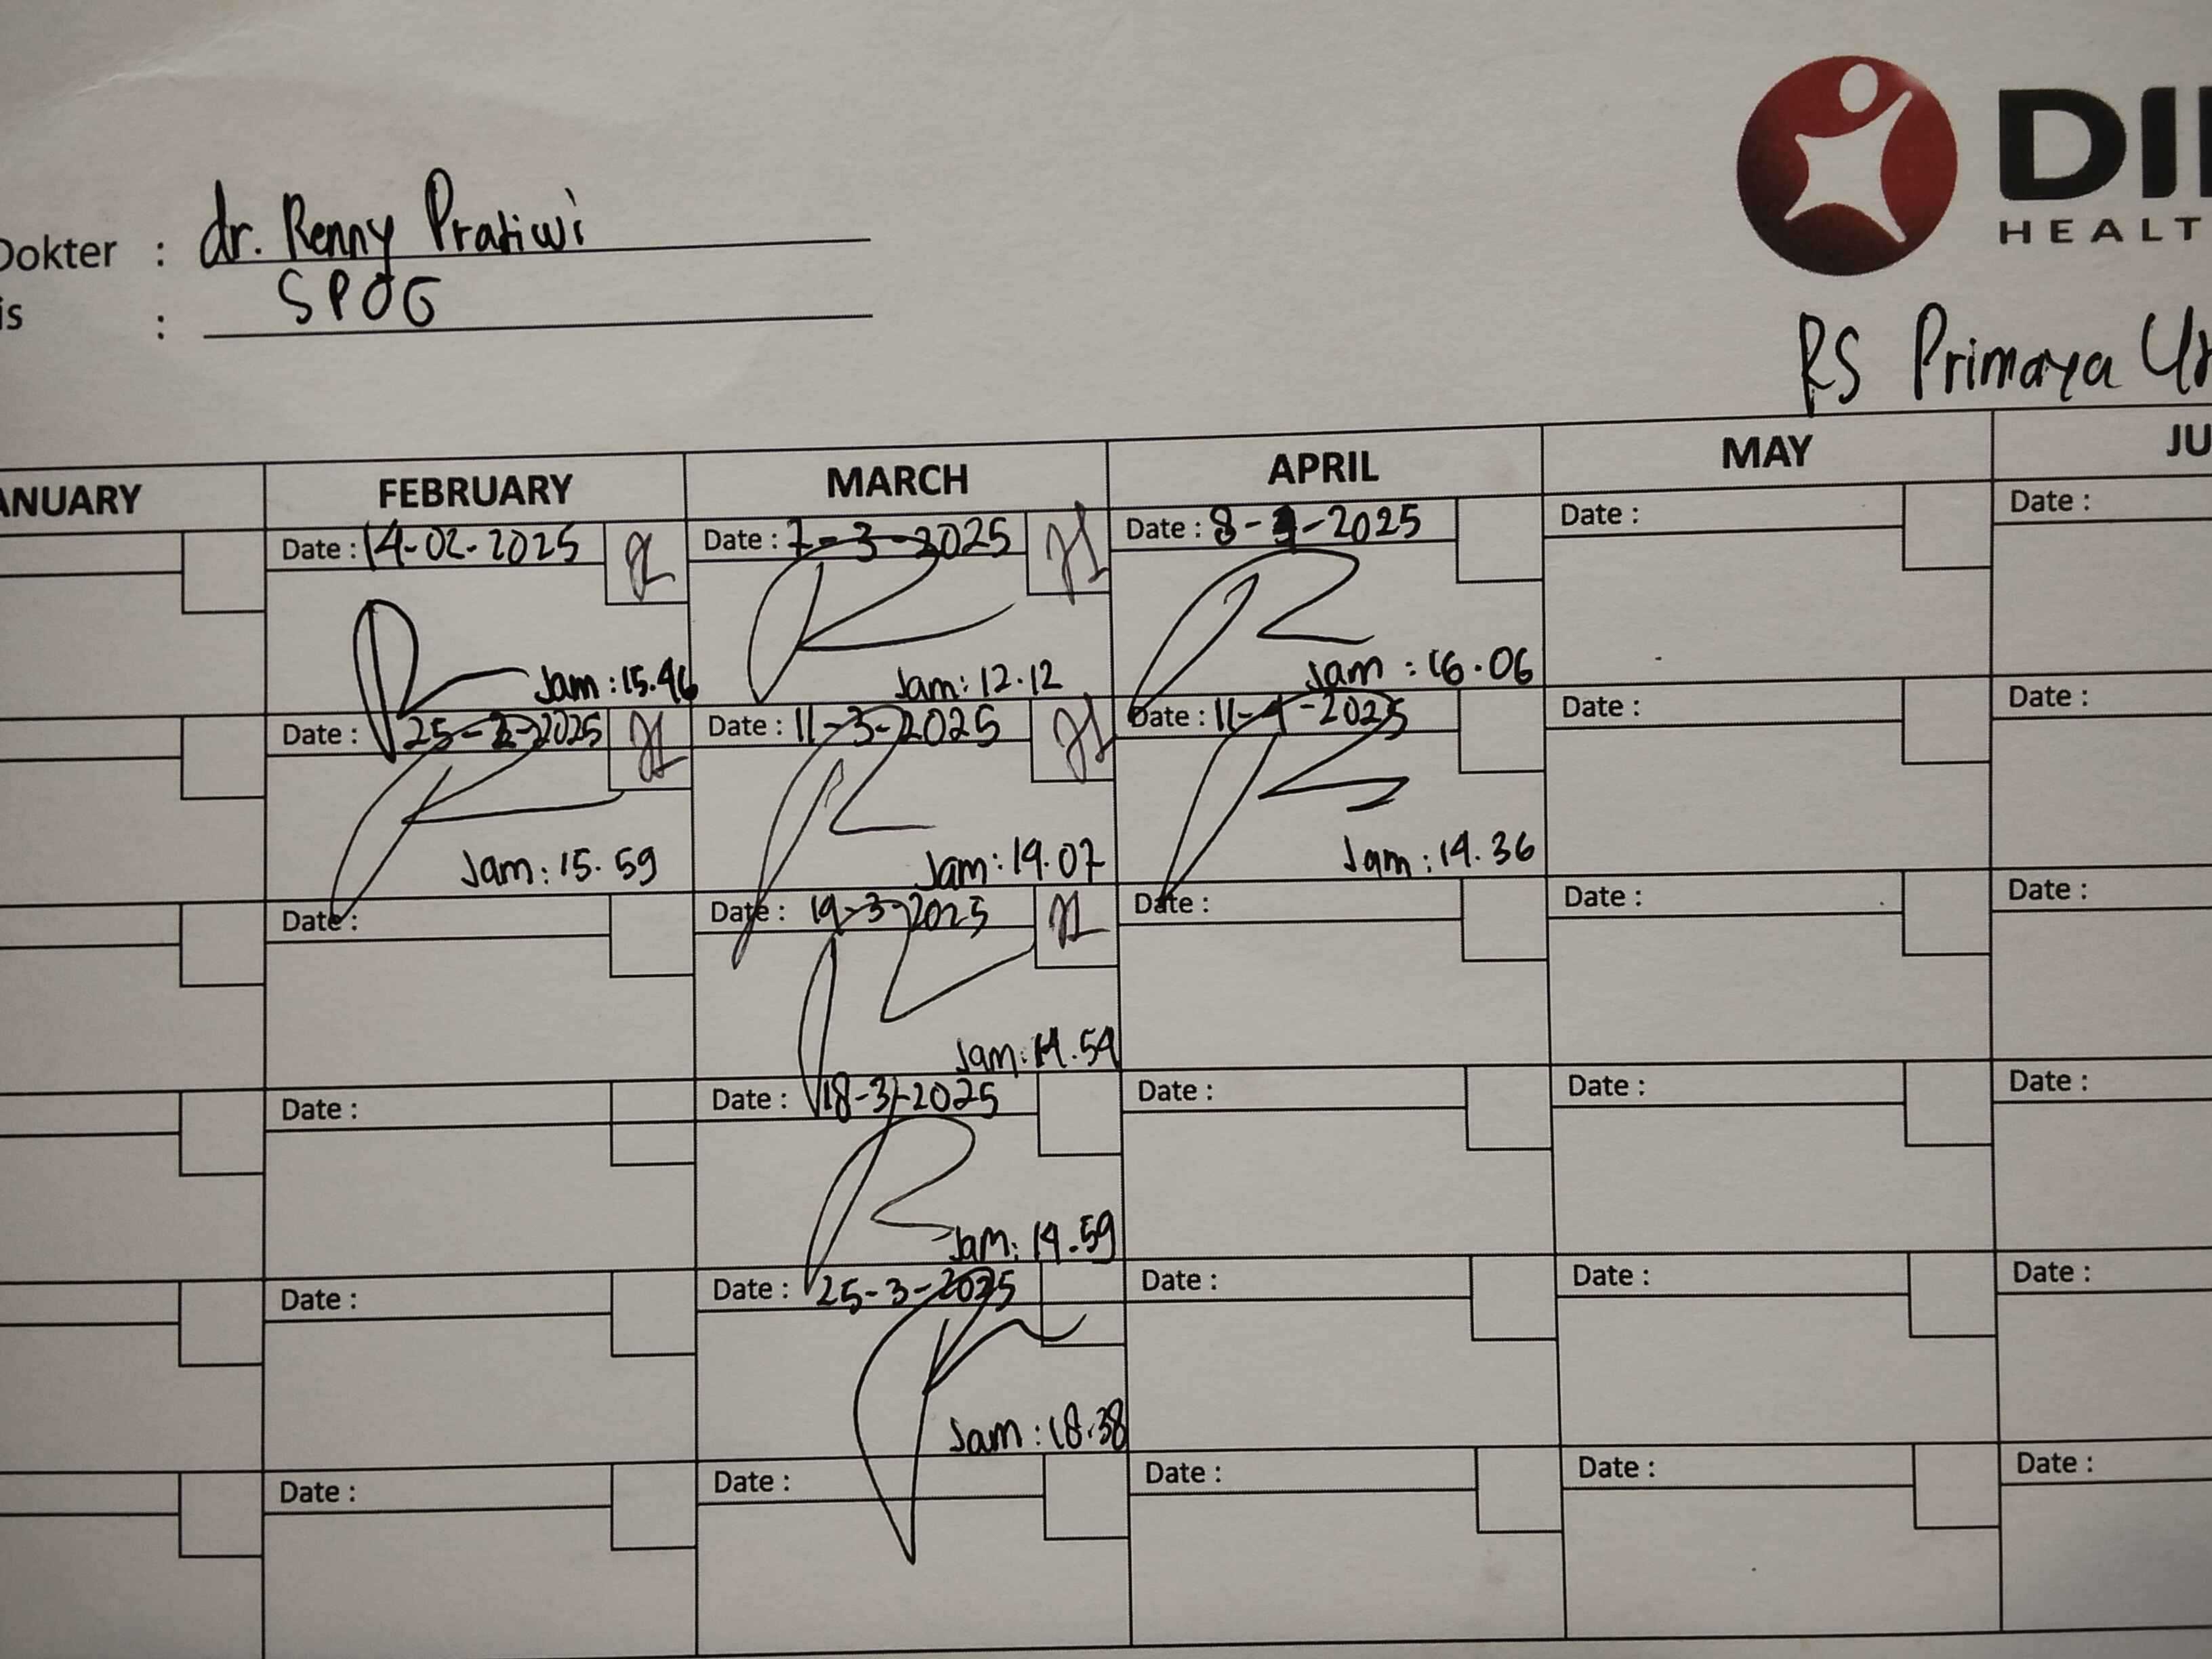 Dokter : dr. Renny Pratiwi
is : SPOG
HEALT
RS Primaya
ANUARY
FEBRUARY
MARCH
APRIL
MAY
JU
Date : 14-02-2025
Date : 7-3-2025
Date : 8-4-2025
Date :
Date :
Jam : 15.46
Jam : 12.12
Jam : 16.06
Date : 25-2-2025
Date : 11-3-2025
Date : 11-4-2025
Date :
Date :
Jam : 15.59
Jam : 14.07
Jam : 14.36
Date :
Date : 14-3-2025
Date :
Date :
Date :
Jam : 14.54
Date :
Date : 18-3-2025
Date :
Date :
Date :
Jam : 14.59
Date :
Date : 25-3-2025
Date :
Date :
Date :
Jam : 18.38
Date :
Date :
Date :
Date :
Date :